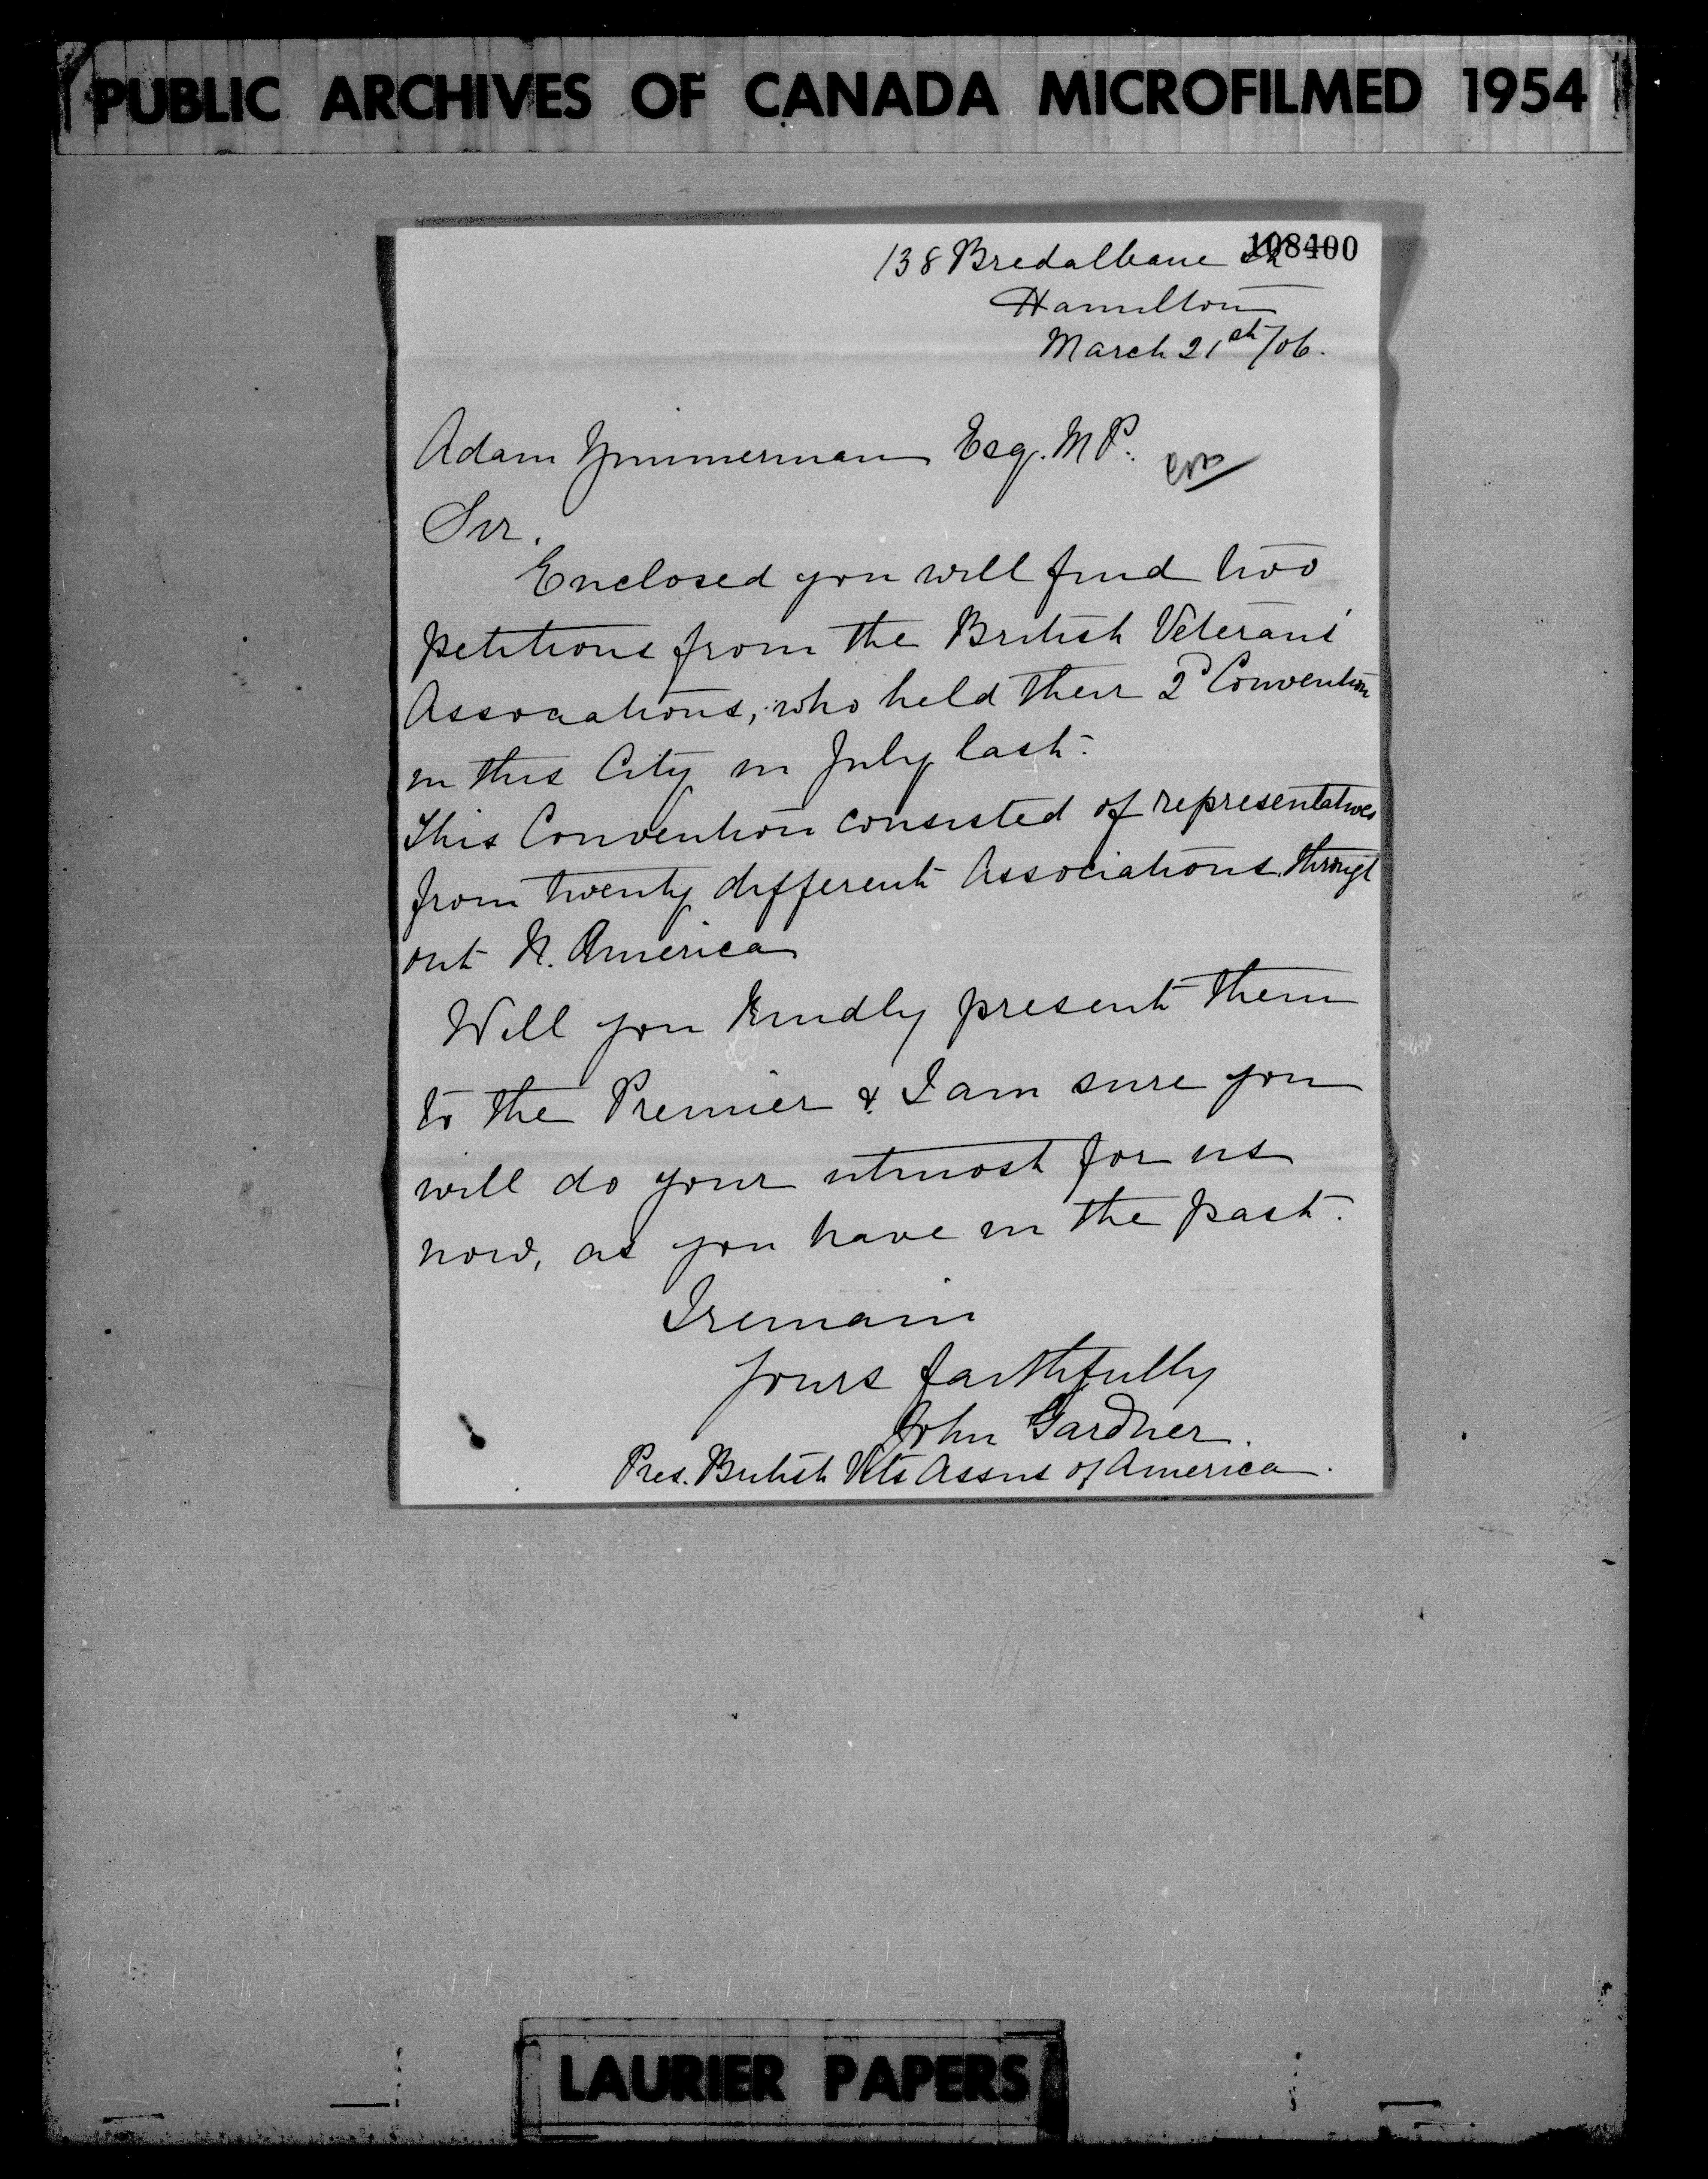 PUBLIC ARCHIVES OF CANADA MICROFILMED 1954
108400
138 Bredalbane St
Hamilton
March 21st/06.
Adam Zimmerman Esq. M P.
Sir,
Enclosed you will find two
petitions from the British Veterans'
Associations, who held their 2d Convention
in this City in July last.
This Convention consisted of representatives
from twenty different Associations through
out N. America
Will you kindly present them
to the Premier & I am sure you
will do your utmost for us
now, as you have in the past.
I remain
yours faithfully
John Gardner.
Pres. British Vets Assns of America.
LAURIER PAPERS